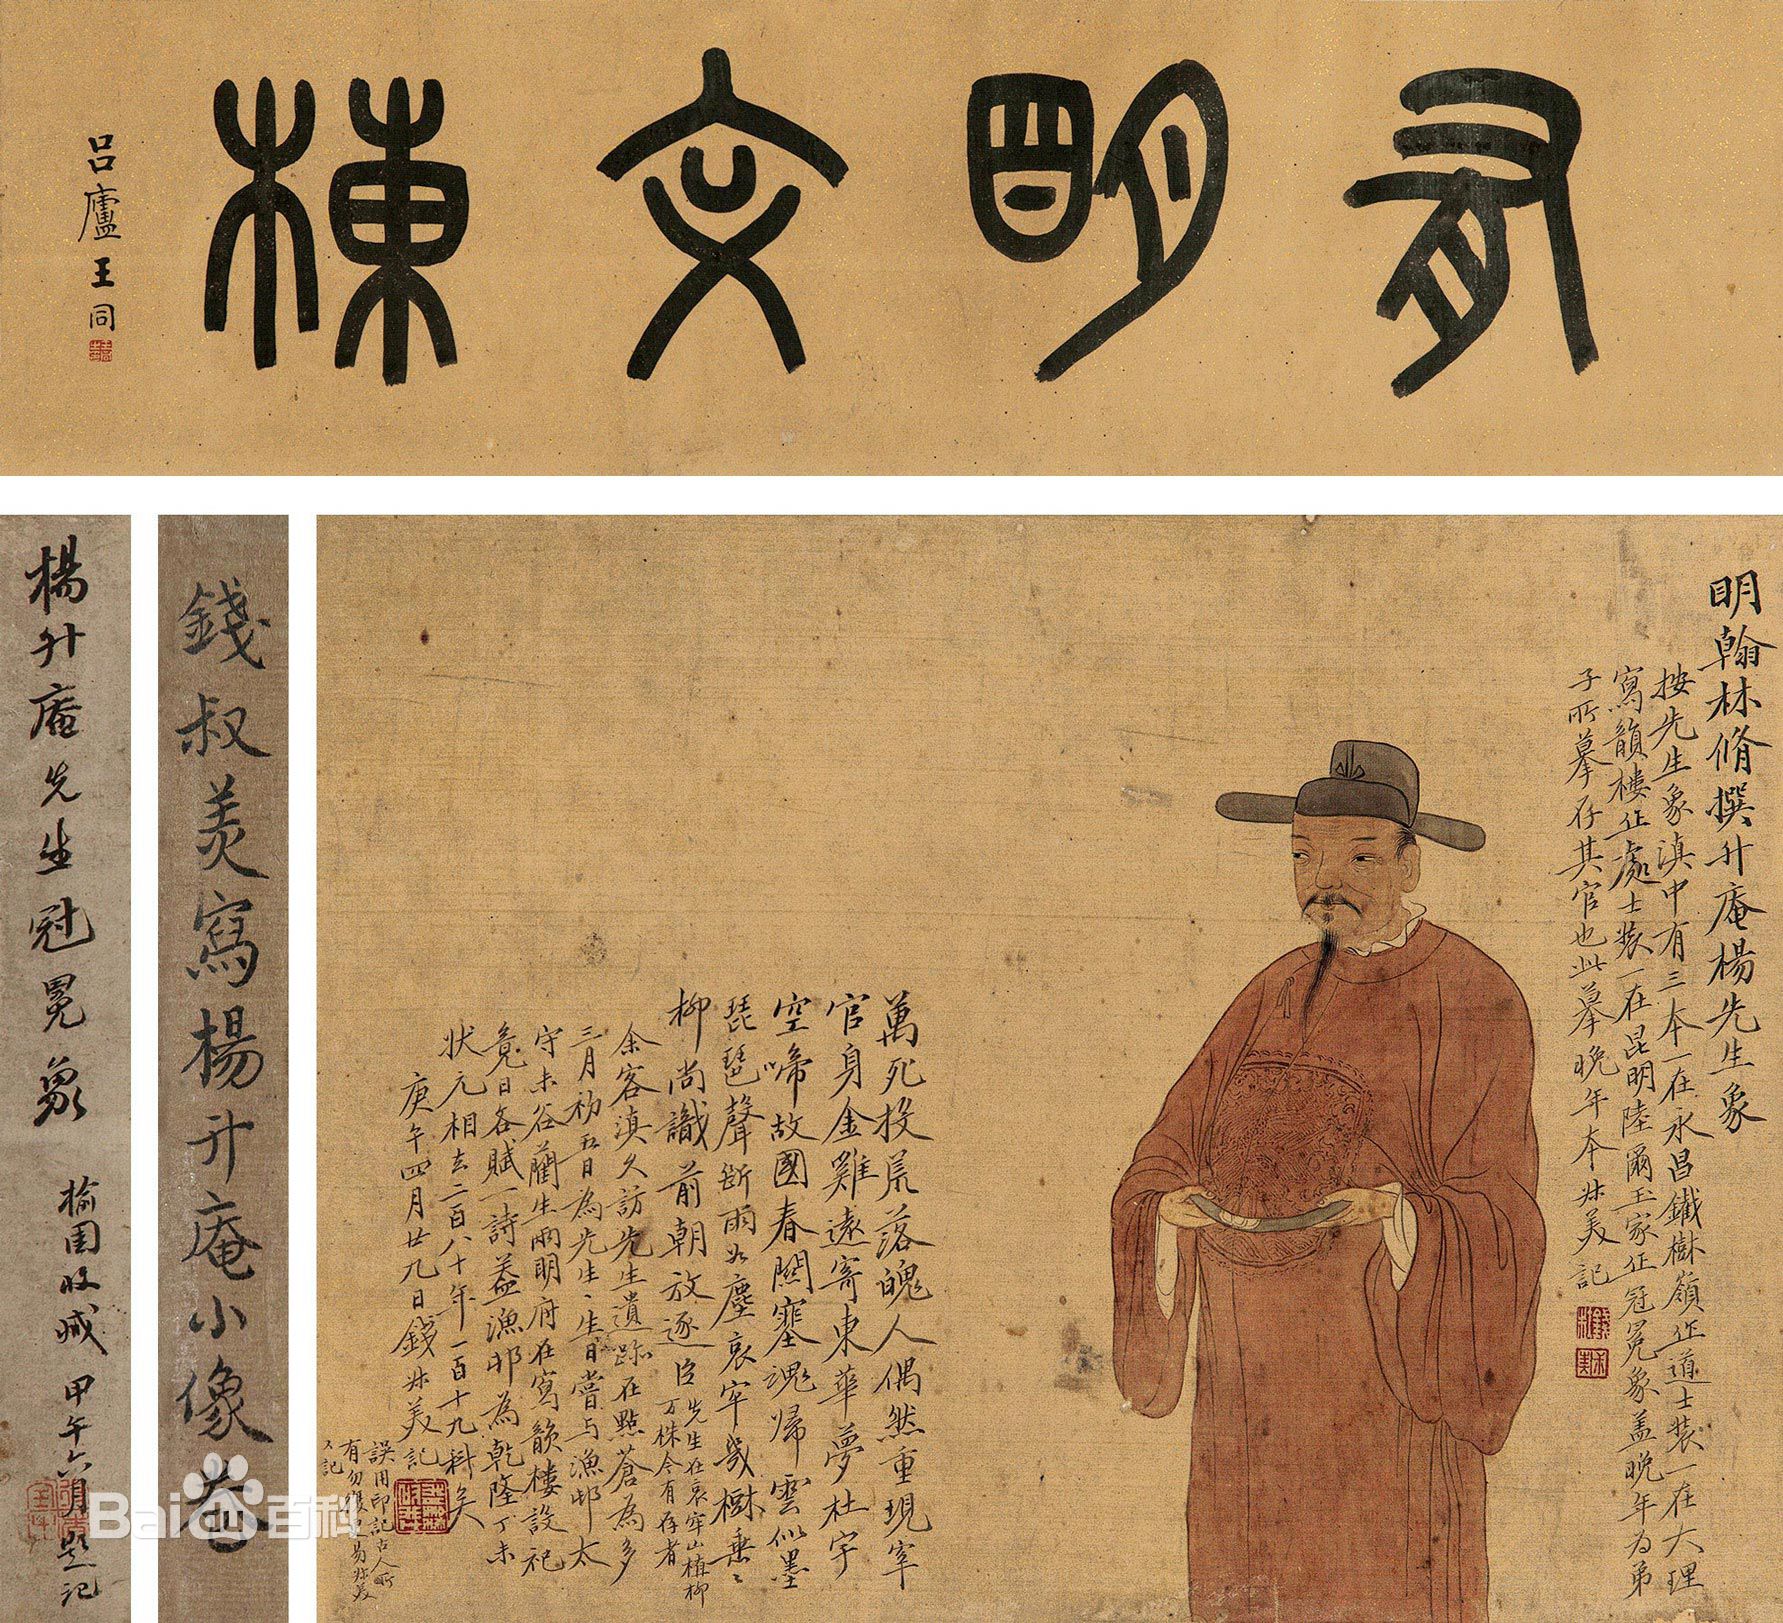 有明文棟
吕廬王同
明翰林脩撰升庵楊先生象
按先生象滇中有三本一在永昌鐵樹嶺止道士裝一在大理
寫韻樓止處士裝一在昆明陸爾玉家止冠冕象蓋晚年為弟
子所摹存其官也此摹晚年本叔美記
萬死投荒落魄人偶然重現宰
官身金雞遠寄東華夢杜宇
空啼故國春關塞魂歸雲似墨
琵琶聲斷雨如塵哀牢幾樹垂垂
柳尚識前朝放逐臣
先生在哀牢山植柳
万株今有存者
余客滇久訪先生遺跡在點蒼為多
三月初五日為先生生日嘗与漁邨太
守未谷藺生兩明府在寫韻樓設祀
竟日各賦一詩蓋漁邨為乾隆丁未
狀元相去二百八十年一百十九科矣
庚午四月廿九日錢叔美記
誤用印記古人所
有勿復易叔美
又記
錢叔美寫楊升庵小像卷
楊升庵先生冠冕象
榆園收藏 甲午六月題記
Baidu百科